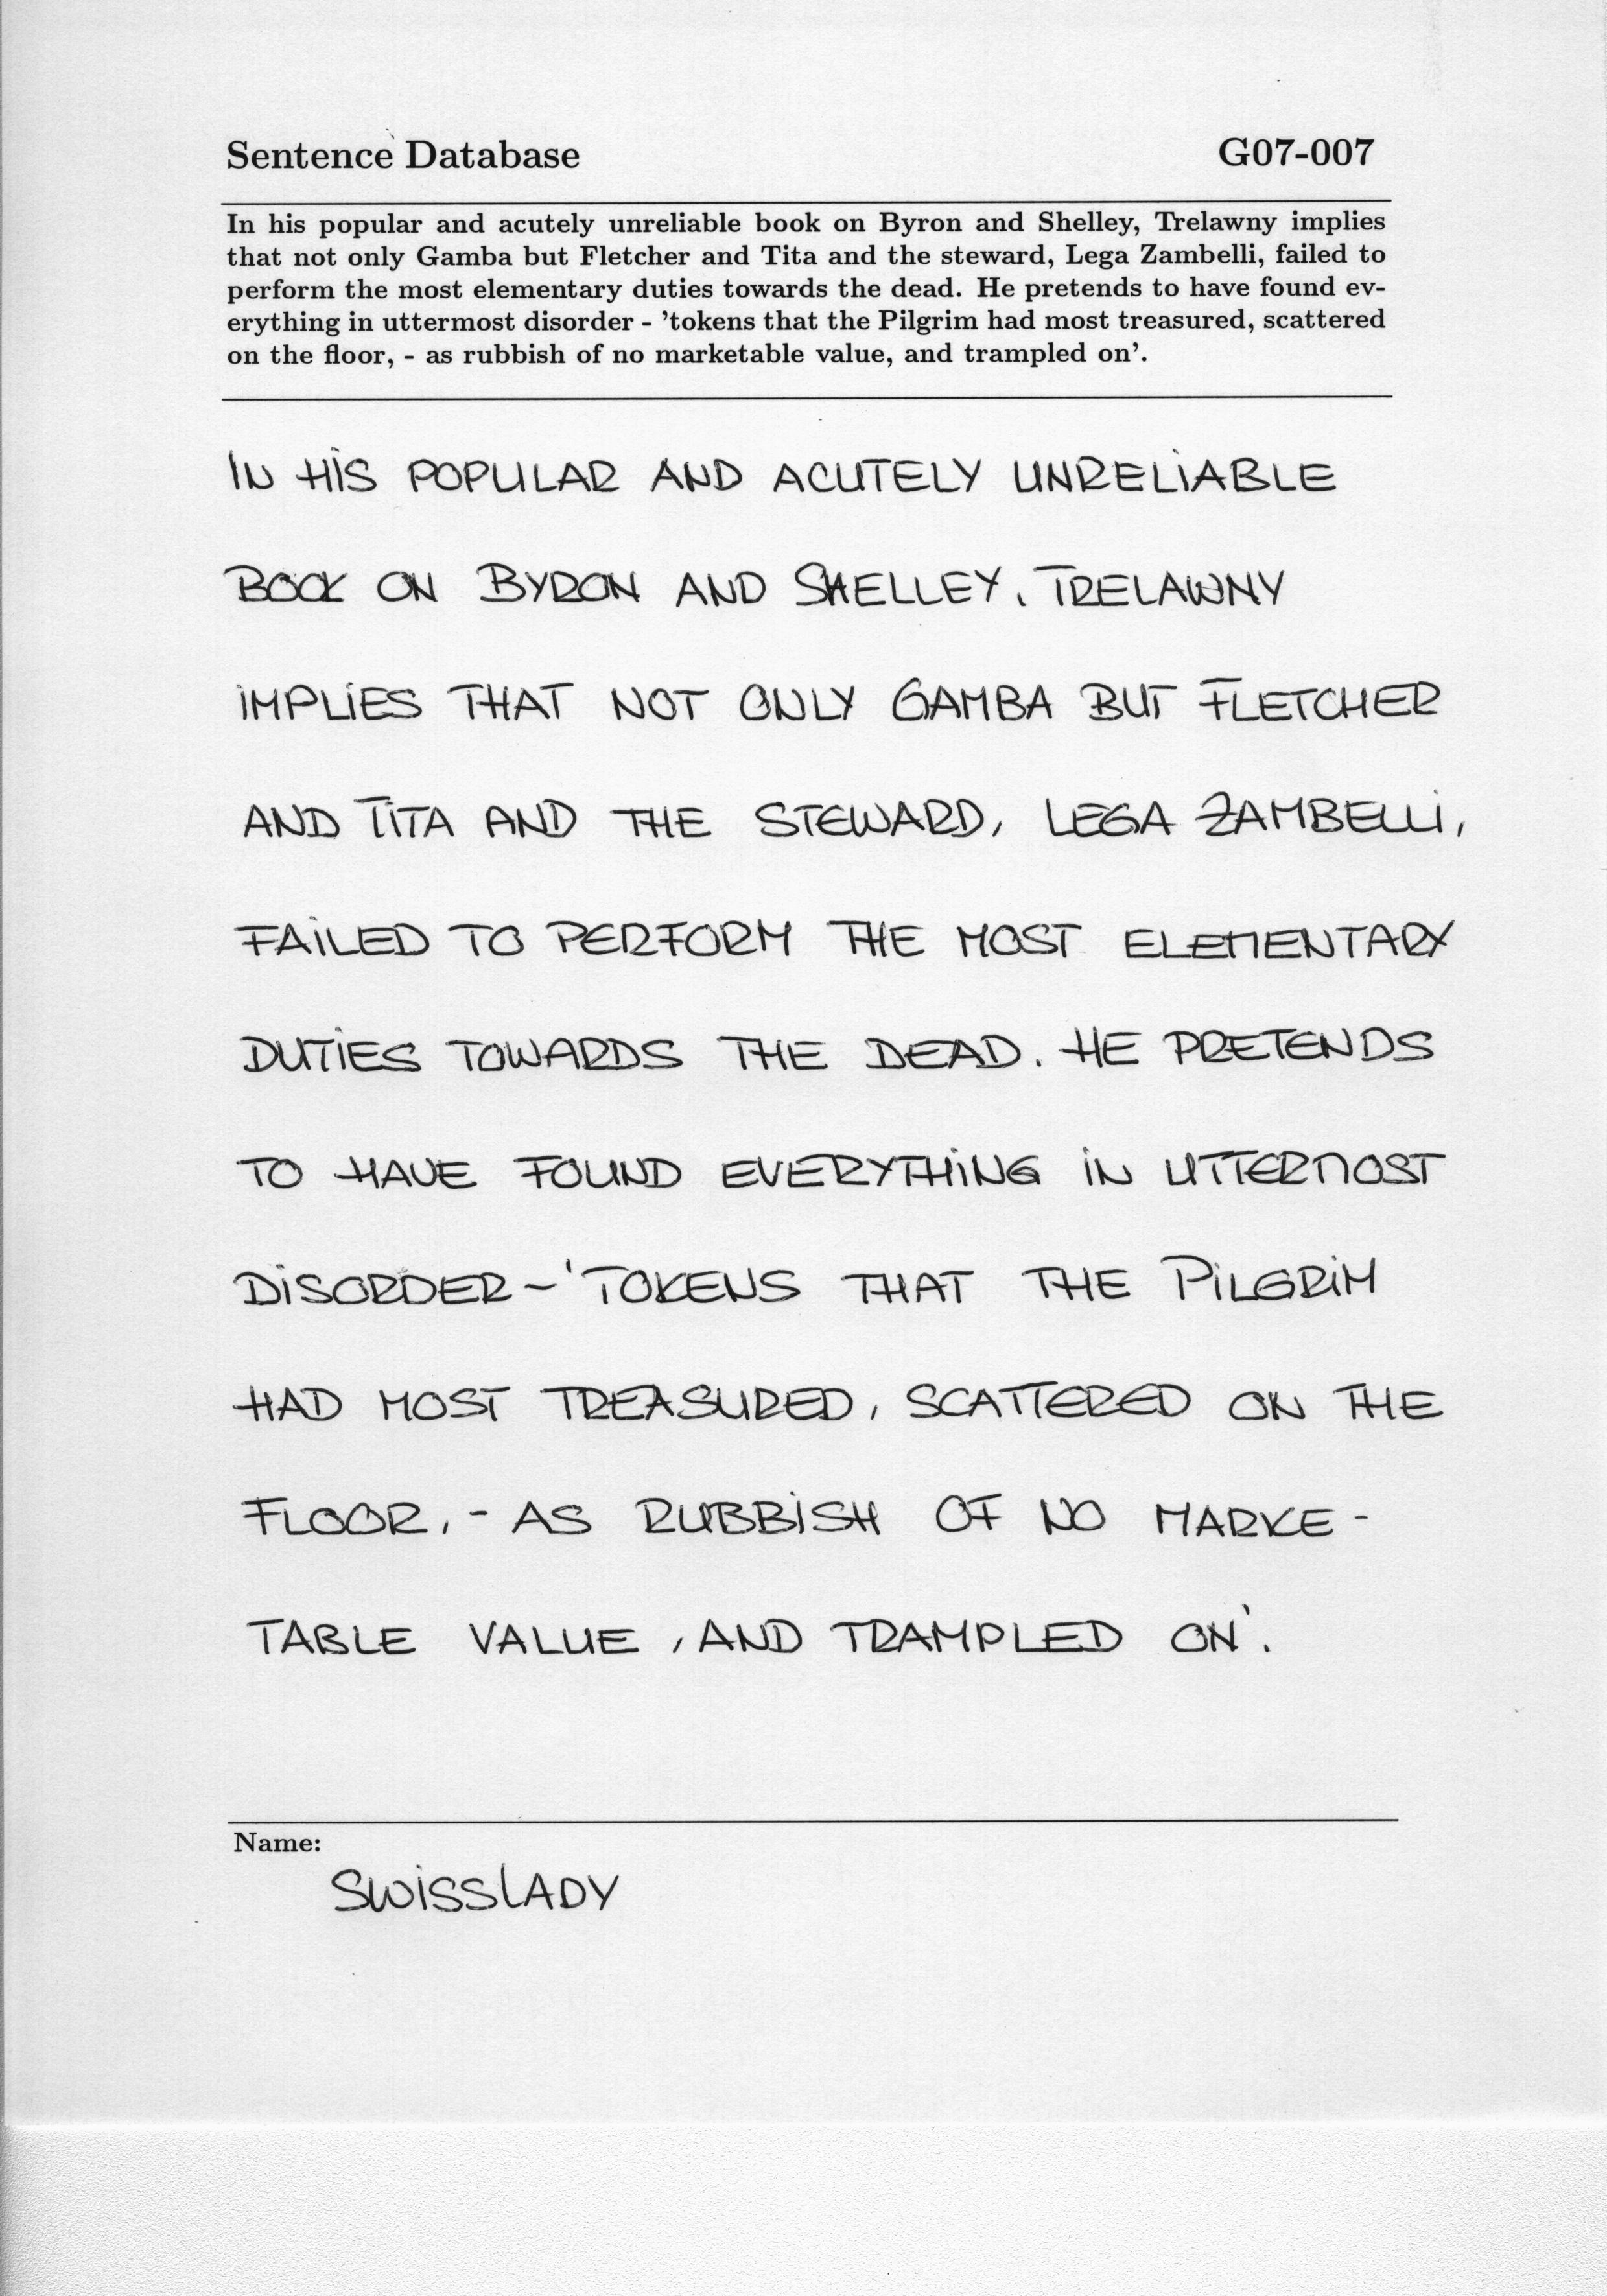 Sentence Database G07-007
In his popular and acutely unreliable book on Byron and Shelley, Trelawny implies
that not only Gamba but Fletcher and Tita and the steward, Lega Zambelli, failed to
perform the most elementary duties towards the dead. He pretends to have found ev-
erything in uttermost disorder - 'tokens that the Pilgrim had most treasured, scattered
on the floor, - as rubbish of no marketable value, and trampled on'.
IN HIS POPULAR AND ACUTELY UNRELIABLE
BOOK ON BYRON AND SHELLEY, TRELAWNY
IMPLIES THAT NOT ONLY GAMBA BUT FLETCHER
AND TITA AND THE STEWARD, LEGA ZAMBELLI,
FAILED TO PERFORM THE MOST ELEMENTARY
DUTIES TOWARDS THE DEAD. HE PRETENDS
TO HAVE FOUND EVERYTHING IN UTTERMOST
DISORDER - 'TOKENS THAT THE PILGRIM
HAD MOST TREASURED, SCATTERED ON THE
FLOOR, - AS RUBBISH OF NO MARKE -
TABLE VALUE, AND TRAMPLED ON'.
Name:
SWISSLADY